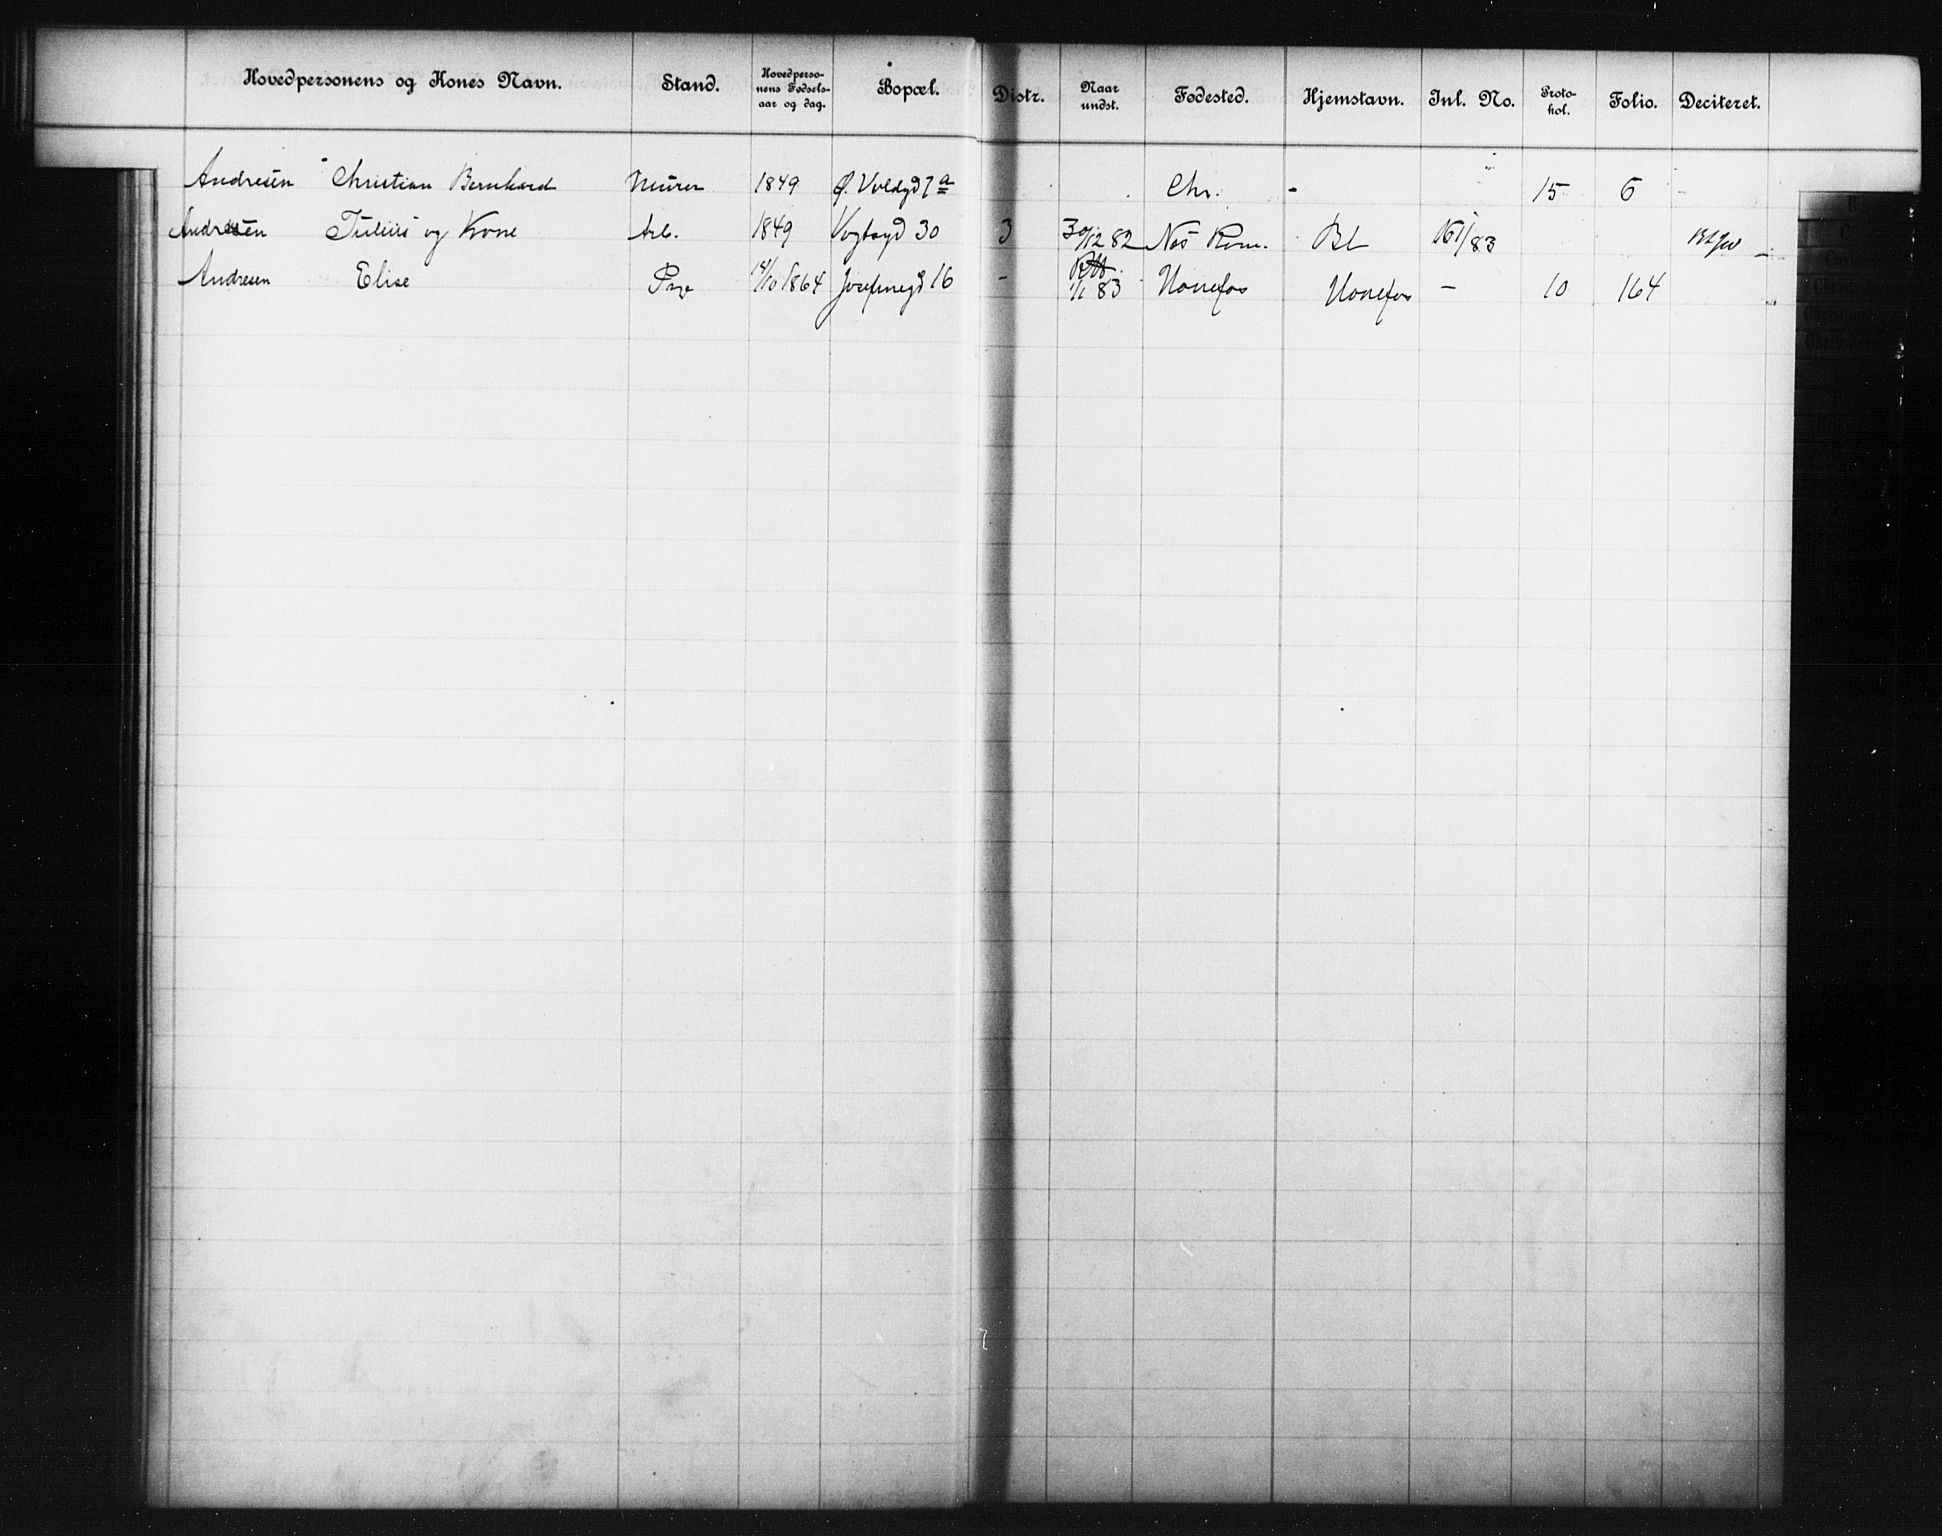 Hovedpersonens og Kones Navn. Stand. Hovedpersonens Fødselsaar og dag. Bopæl. Distr. Naar undst. Fødested. Hjemstavn. Inl. No. Protokol. Folio. Deciteret.
Andresen Christian Bernhard Murer 1849 Ø. Voldgd 7a Chr. - 15 6 -
Andresen Julius og Kone Arb. 1849 Vogtsgd 30 3 30/12 82 Nes Rom. Bl 161/83
Andresen Elise Pige 14/10 1864 Josefinegd 16 - 1/1 83 Hønefos Hønefos - 10 164